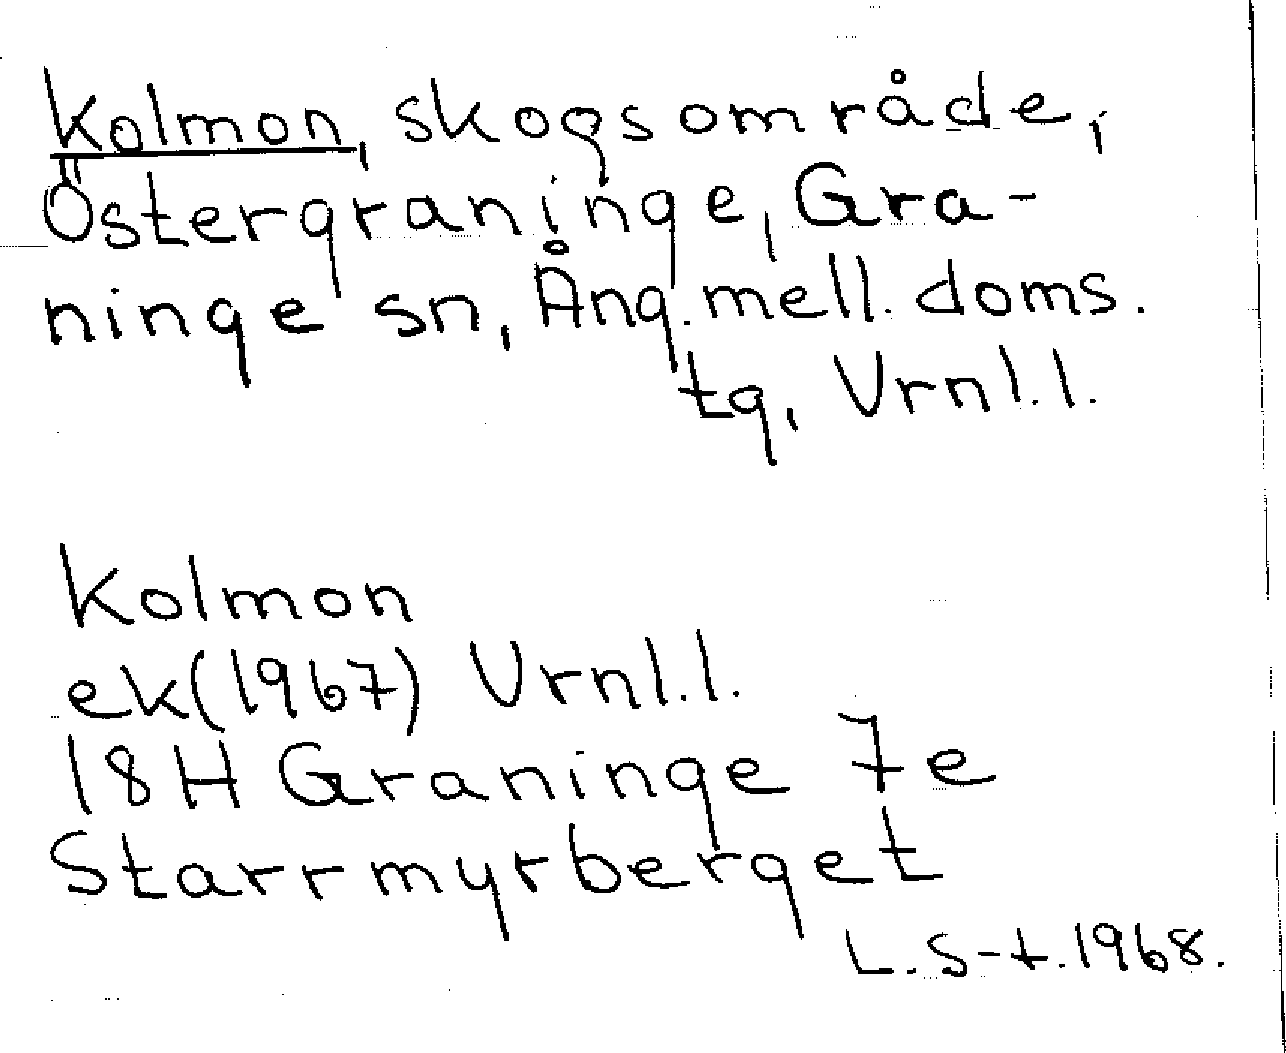 Kolmon, skogsområde,
Östergraninge, Gra-
ninge sn, Ång. mell. doms.
tg, Vrnl.l.
Kolmon
ek(1967) Vrnl.l.
18H Graninge 7e
Starrmyrberget
L.S-t.1968.